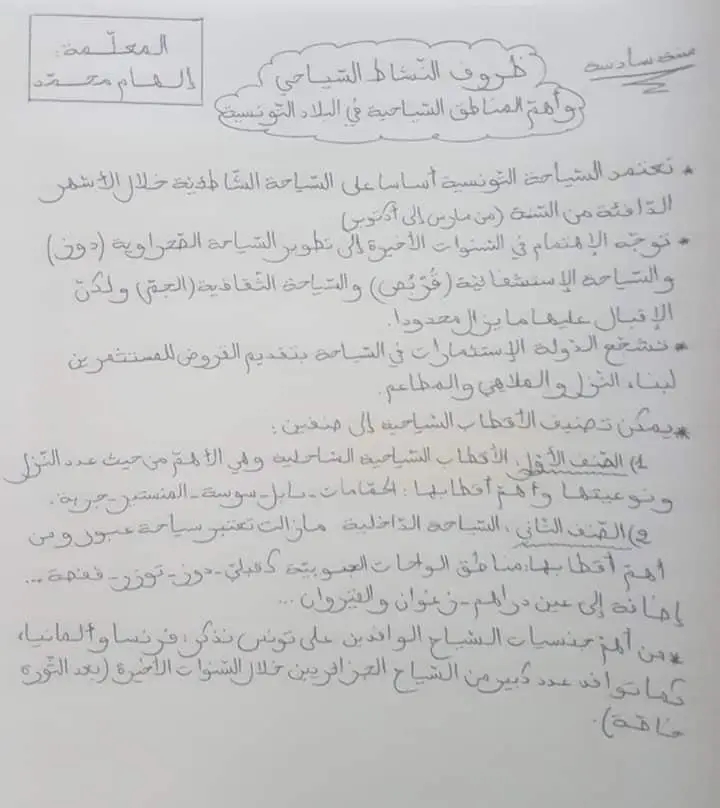 المعلّمة:
إلهام محمّد
سنة سادسة
ظروف النّشاط السّياحي
وأهمّ المناطق السّياحية في البلاد التّونسيّة
* تعتمد السّياحة التّونسية أساسا على السّياحة الشّاطئية خلال الأشهر
الدّافئة من السّنة (من مارس إلى أكتوبر)
* توجّه الإهتمام في السّنوات الأخيرة إلى تطوير السّياحة الصّحراوية (دوز)
والسّياحة الإستشفائيّة (قُرْبُص) والسّياحة الثّقافية (الجمّ) ولكنّ
الإقبال عليها ما يزال محدودا.
* تشجّع الدّولة الإستثمارات في السّياحة بتقديم القروض للمستثمرين
لبناء النّزل والملاهي والمطاعم.
* يمكن تصنيف الأقطاب السّياحية إلى صنفين:
1) الصّنف الأوّل: الأقطاب السّياحية السّاحلية وهي الأهمّ من حيث عدد النّزل
ونوعيتها وأهمّ أقطابها: الحمّامات - نابل - سوسة - المنستير - جربة.
2) الصّنف الثّاني: السّياحة الدّاخلية مازالت تعتبر سياحة عبور ومن
أهمّ أقطابها: مناطق الواحات الجنوبيّة كقبلّي - دوز - توزر - قفصة ...
إضافة إلى عين دراهم - زغوان والقيروان ...
* من أهمّ جنسيات السّيّاح الوافدين على تونس نذكر: فرنسا وألمانيا،
كما توافد عدد كبير من السّياح الجزائريين خلال السّنوات الأخيرة (بعد الثّورة
خاصّة).